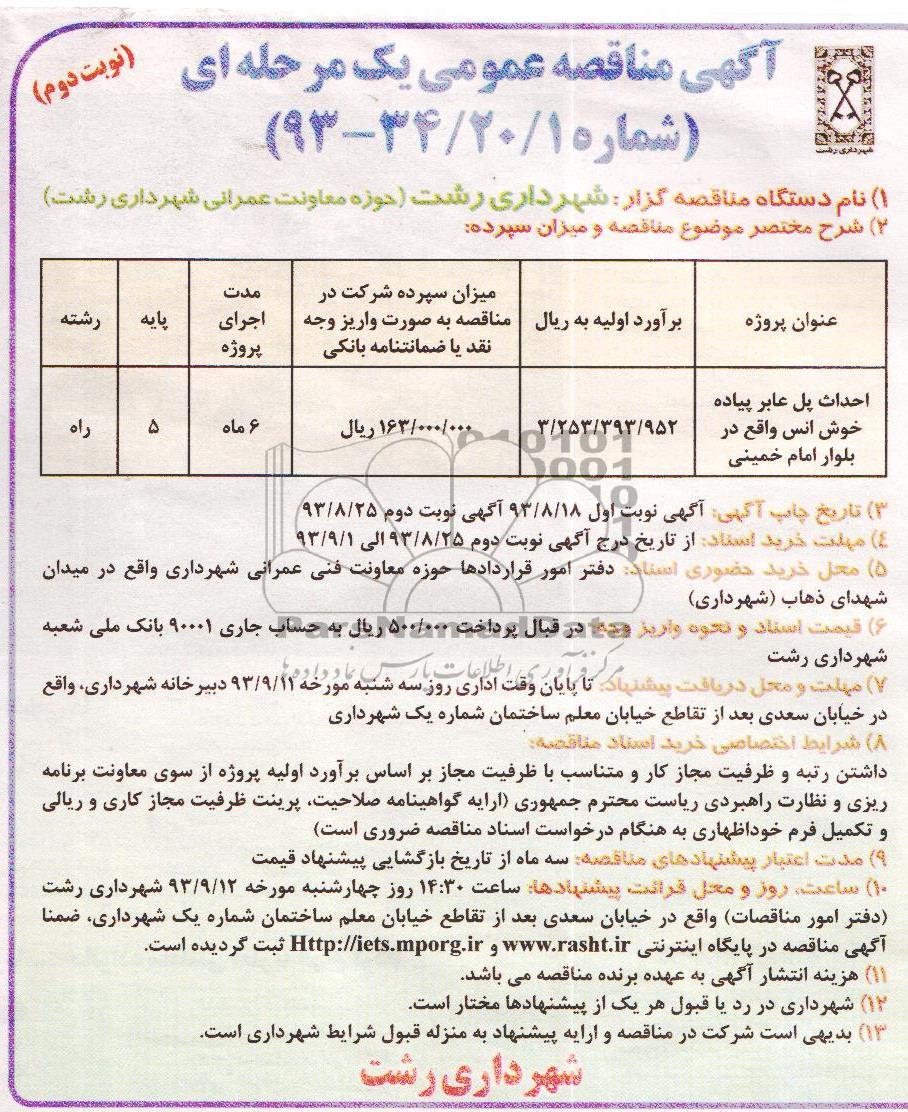 آگهی مناقصه عمومی یک مرحله ای
(نوبت دوم)
(شماره ۹۳-۳۴/۲۰/۱)
شهرداری رشت
۱) نام دستگاه مناقصه گزار: شهرداری رشت (حوزه معاونت عمرانی شهرداری رشت)
۲) شرح مختصر موضوع مناقصه و میزان سپرده:
عنوان پروژه
برآورد اولیه به ریال
میزان سپرده شرکت در
مناقصه به صورت واریز وجه
نقد یا ضمانتنامه بانکی
مدت
اجرای
پروژه
پایه
رشته
احداث پل عابر پیاده
خوش انس واقع در
بلوار امام خمینی
۳/۲۵۳/۳۹۳/۹۵۲
۱۶۳/۰۰۰/۰۰۰ ریال
۶ ماه
۵
راه
۳) تاریخ چاپ آگهی: آگهی نوبت اول ۹۳/۸/۱۸ آگهی نوبت دوم ۹۳/۸/۲۵
۴) مهلت خرید اسناد: از تاریخ درج آگهی نوبت دوم ۹۳/۸/۲۵ الی ۹۳/۹/۱
۵) محل خرید حضوری اسناد: دفتر امور قراردادها حوزه معاونت فنی عمرانی شهرداری واقع در میدان
شهدای ذهاب (شهرداری)
۶) قیمت اسناد و نحوه واریز وجه: در قبال پرداخت ۵۰۰/۰۰۰ ریال به حساب جاری ۹۰۰۰۱ بانک ملی شعبه
شهرداری رشت
۷) مهلت و محل دریافت پیشنهاد: تا پایان وقت اداری روز سه شنبه مورخه ۹۳/۹/۱۱ دبیرخانه شهرداری، واقع
در خیابان سعدی بعد از تقاطع خیابان معلم ساختمان شماره یک شهرداری
۸) شرایط اختصاصی خرید اسناد مناقصه:
داشتن رتبه و ظرفیت مجاز کار و متناسب با ظرفیت مجاز بر اساس برآورد اولیه پروژه از سوی معاونت برنامه
ریزی و نظارت راهبردی ریاست محترم جمهوری (ارایه گواهینامه صلاحیت، پرینت ظرفیت مجاز کاری و ریالی
و تکمیل فرم خوداظهاری به هنگام درخواست اسناد مناقصه ضروری است)
۹) مدت اعتبار پیشنهادهای مناقصه: سه ماه از تاریخ بازگشایی پیشنهاد قیمت
۱۰) ساعت، روز و محل قرائت پیشنهادها: ساعت ۱۴:۳۰ روز چهارشنبه مورخه ۹۳/۹/۱۲ شهرداری رشت
(دفتر امور مناقصات) واقع در خیابان سعدی بعد از تقاطع خیابان معلم ساختمان شماره یک شهرداری، ضمنا
آگهی مناقصه در پایگاه اینترنتی www.rasht.ir و Http://iets.mporg.ir ثبت گردیده است.
۱۱) هزینه انتشار آگهی به عهده برنده مناقصه می باشد.
۱۲) شهرداری در رد یا قبول هر یک از پیشنهادها مختار است.
۱۳) بدیهی است شرکت در مناقصه و ارایه پیشنهاد به منزله قبول شرایط شهرداری است.
شهرداری رشت
ParsNamadData
مرکز فرآوری اطلاعات پارس نماد داده ها